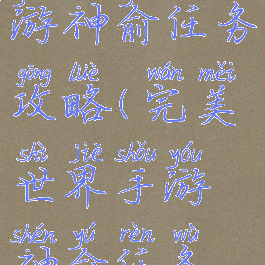 游神俞任务
gōng lüè wán měi
攻略(完美
shì jiè shǒu yóu
世界手游
shén yú rèn wù
神俞任务